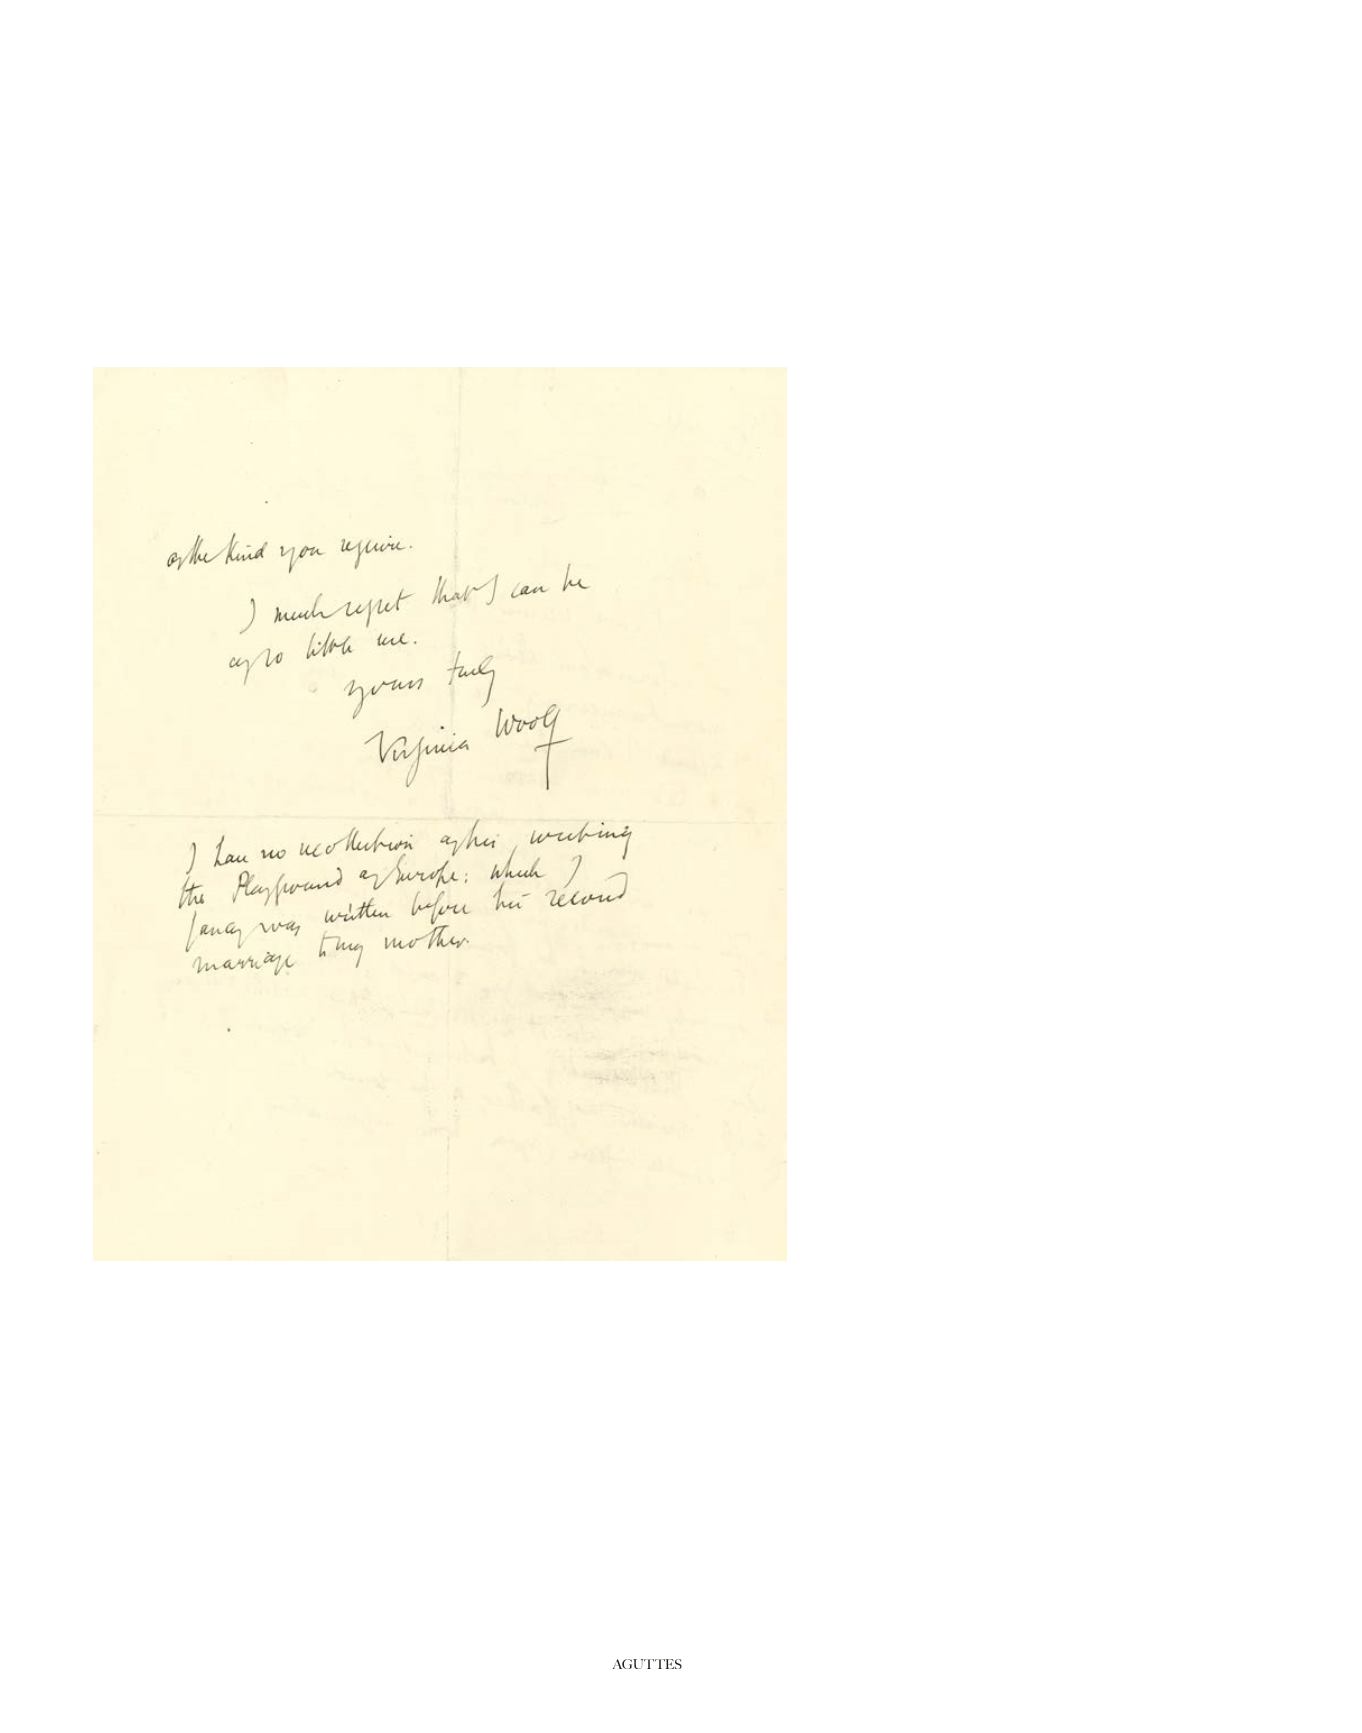 of the kind you require.
I much regret that I can be
of so little use.
yours truly
Virginia Woolf
I have no recollection of his writing
the Playground of Europe: which I
fancy was written before his second
marriage to my mother.
AGUTTES